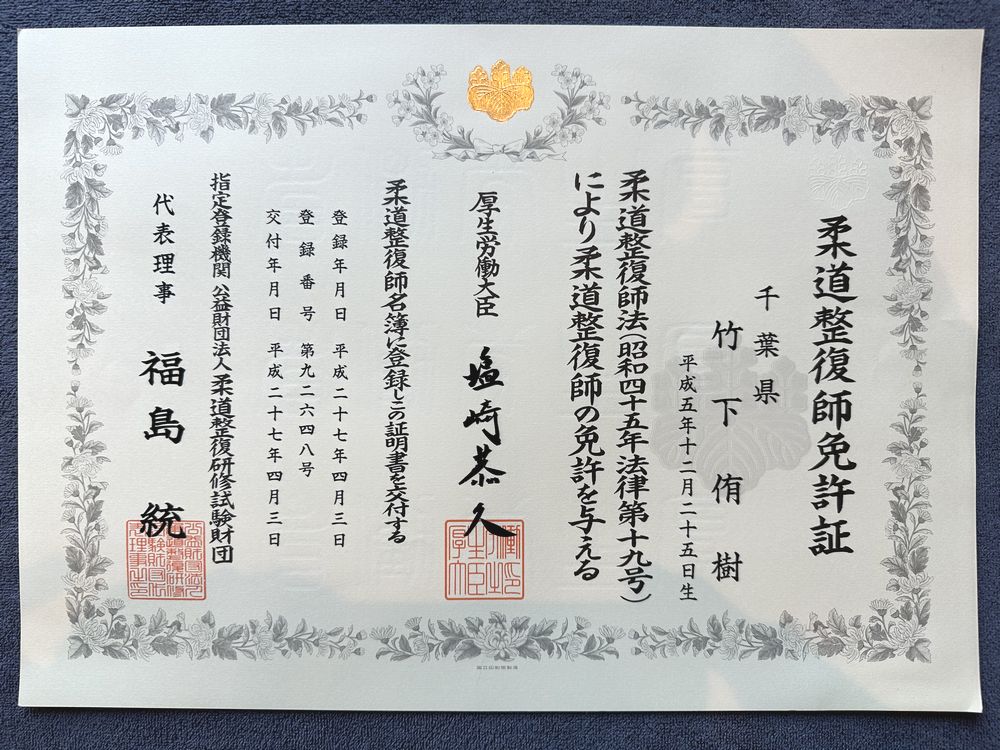 柔道整復師免許証
千葉県
竹下侑樹
平成五年十二月二十五日生
柔道整復師法(昭和四十五年法律第十九号)
により柔道整復師の免許を与える
厚生労働大臣 塩崎恭久
柔道整復師名簿に登録しこの証明書を交付する
登録年月日 平成二十七年四月三日
登録番号 第九二六四八号
交付年月日 平成二十七年四月三日
指定登録機関 公益財団法人柔道整復研修試験財団
代表理事 福島統
国立印刷局製造